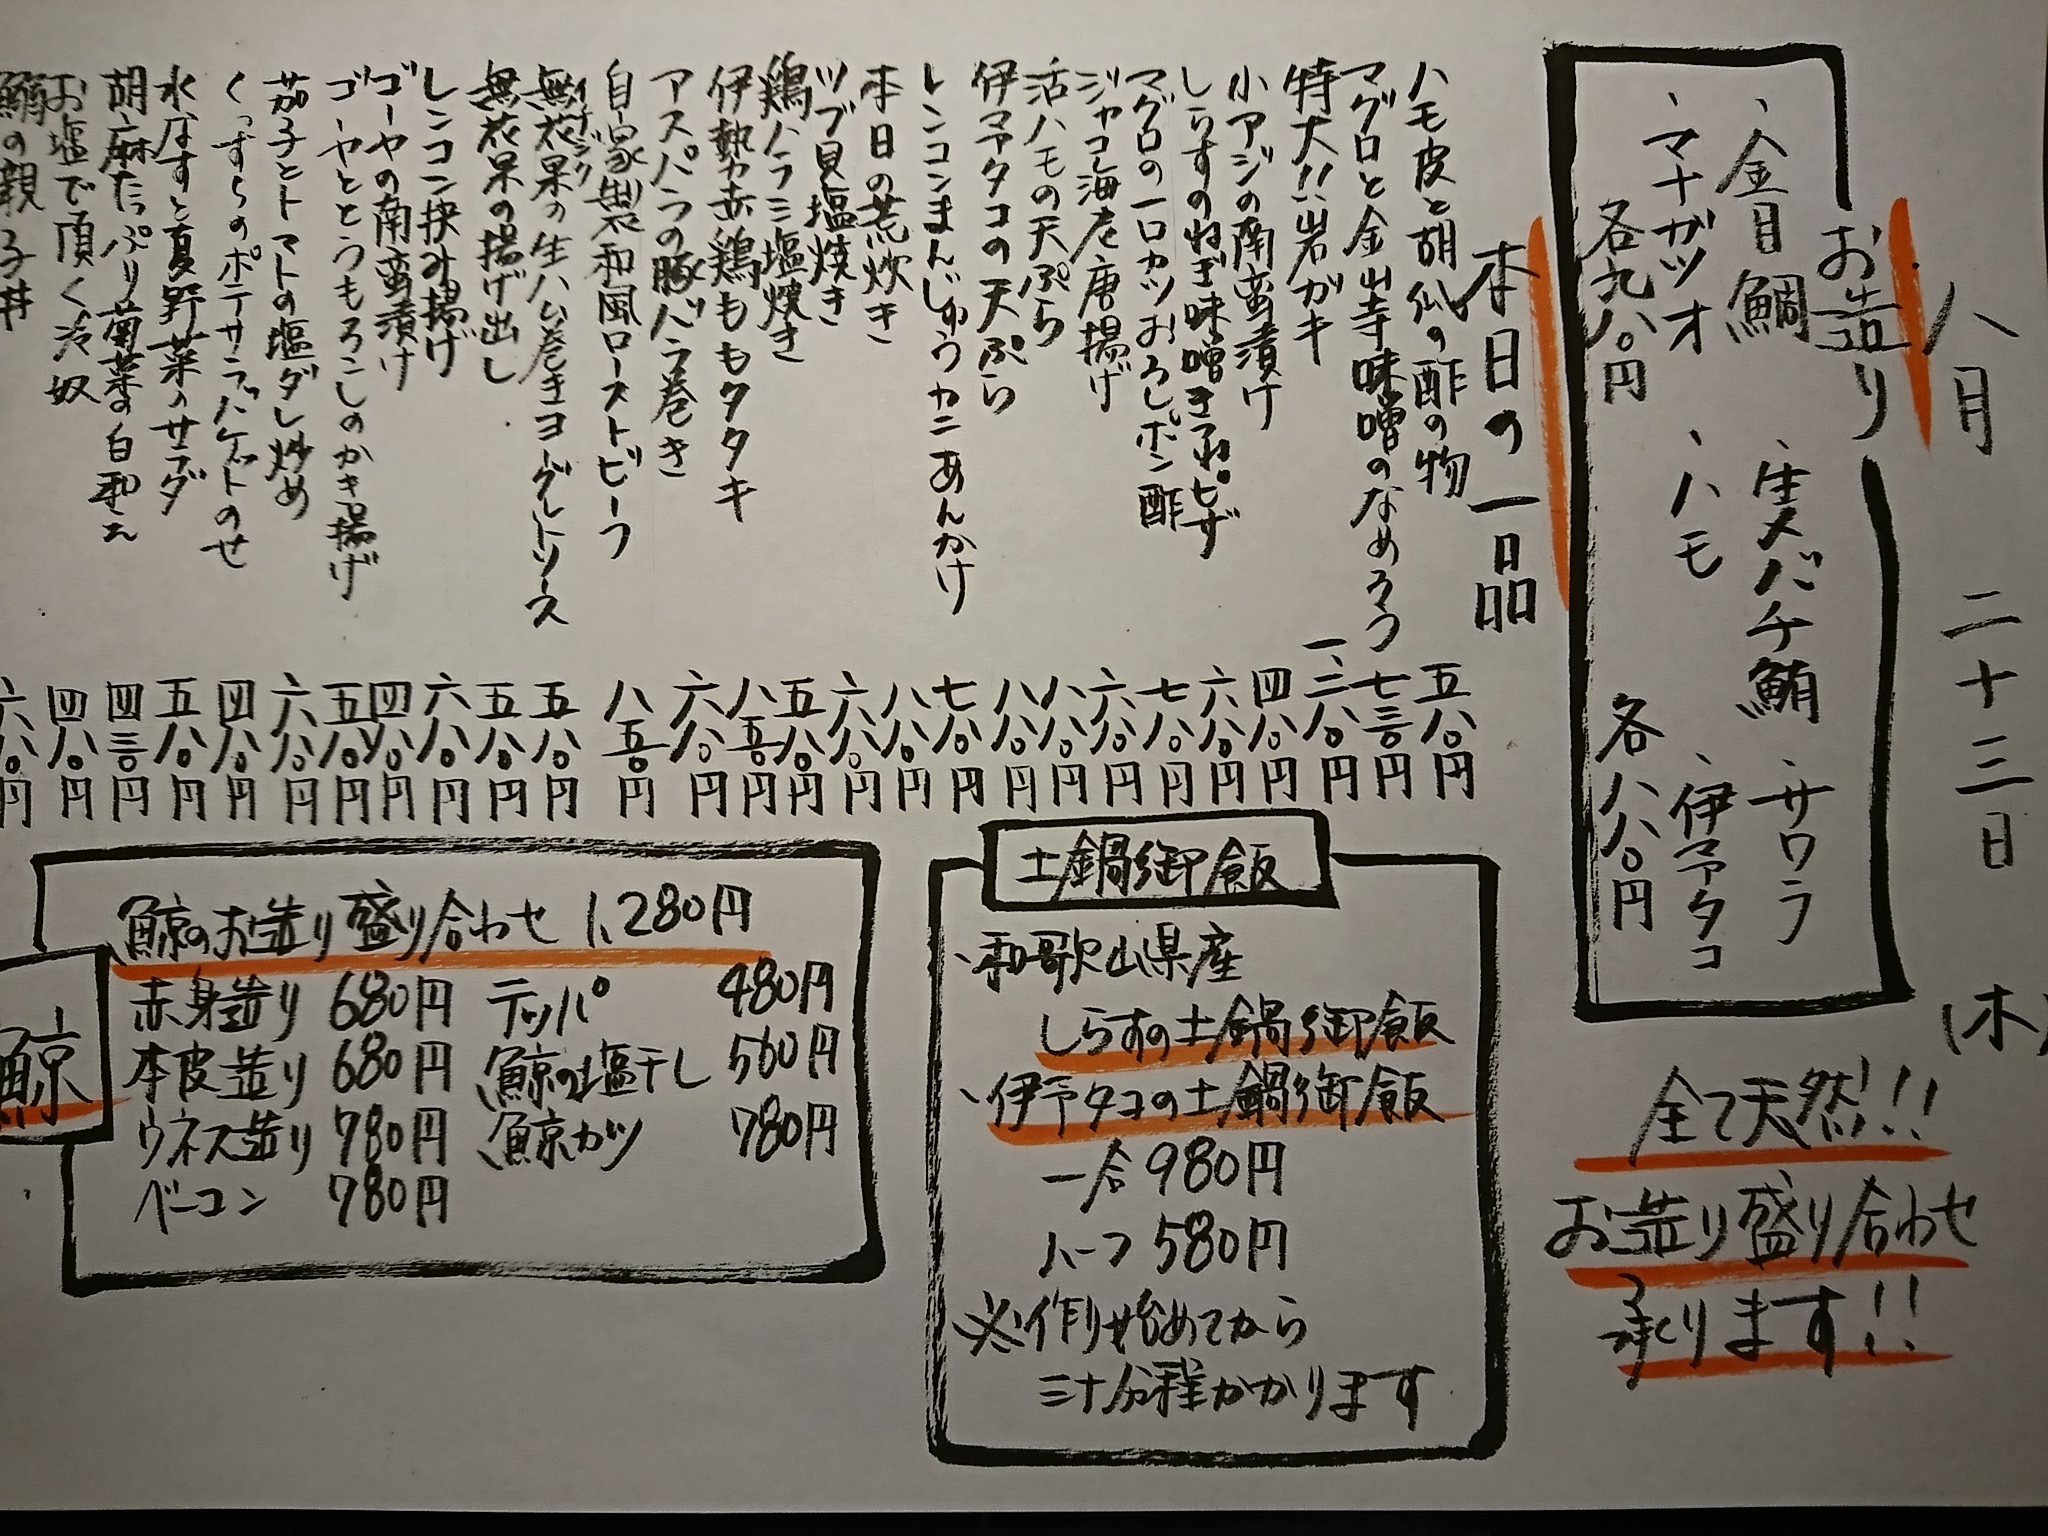 八月 二十三日 (木)
お造り
、金目鯛 、生メバチ鮪 、サワラ
、マナガツオ 、ハモ 、伊予タコ
各九八〇円 各八八〇円
全て天然!!
お造り盛り合わせ
承ります!!
本日の一品
ハモ皮と胡瓜の酢の物 五八〇円
マグロと金山寺味噌のなめろう 七三〇円
特大!!岩ガキ 一、二八〇円
小アジの南蛮漬け 四八〇円
しらすのねぎ味噌きつねピザ 六八〇円
マグロの一口カツおろしポン酢 七八〇円
ジャコ海老唐揚げ 六八〇円
活ハモの天ぷら 八八〇円
伊予タコの天ぷら 八八〇円
レンコンまんじゅうカニあんかけ 七八〇円
本日の荒炊き 八八〇円
ツブ貝塩焼き 六八〇円
鶏ハラミ塩焼き 五八〇円
伊勢赤鶏ももタタキ 八五〇円
アスパラの豚バラ巻き 六八〇円
自家製和風ローストビーフ 八五〇円
無花果の生ハム巻きヨーグルトソース 五八〇円
イチジク
無花果の揚げ出し 五八〇円
レンコン挟み揚げ 六八〇円
ゴーヤの南蛮漬け 四八〇円
ゴーヤととうもろこしのかき揚げ 五八〇円
茄子とトマトの塩ダレ炒め 六八〇円
くっすらのポテサラバケットのせ 四八〇円
水なすと夏野菜のサラダ 五八〇円
胡麻たっぷり菊菜の白和え 四三〇円
お塩で頂く冷奴 四八〇円
鮪の親子丼 六八〇円
土鍋御飯
、和歌山県産
しらすの土鍋御飯
、伊予タコの土鍋御飯
一合 980円
ハーフ 580円
※作り始めてから
三十分程かかります
鯨
鯨のお造り盛り合わせ 1,280円
赤身造り 680円 テッパ 480円
本皮造り 680円 鯨の塩干し 560円
ウネス造り 780円 鯨カツ 780円
ベーコン 780円